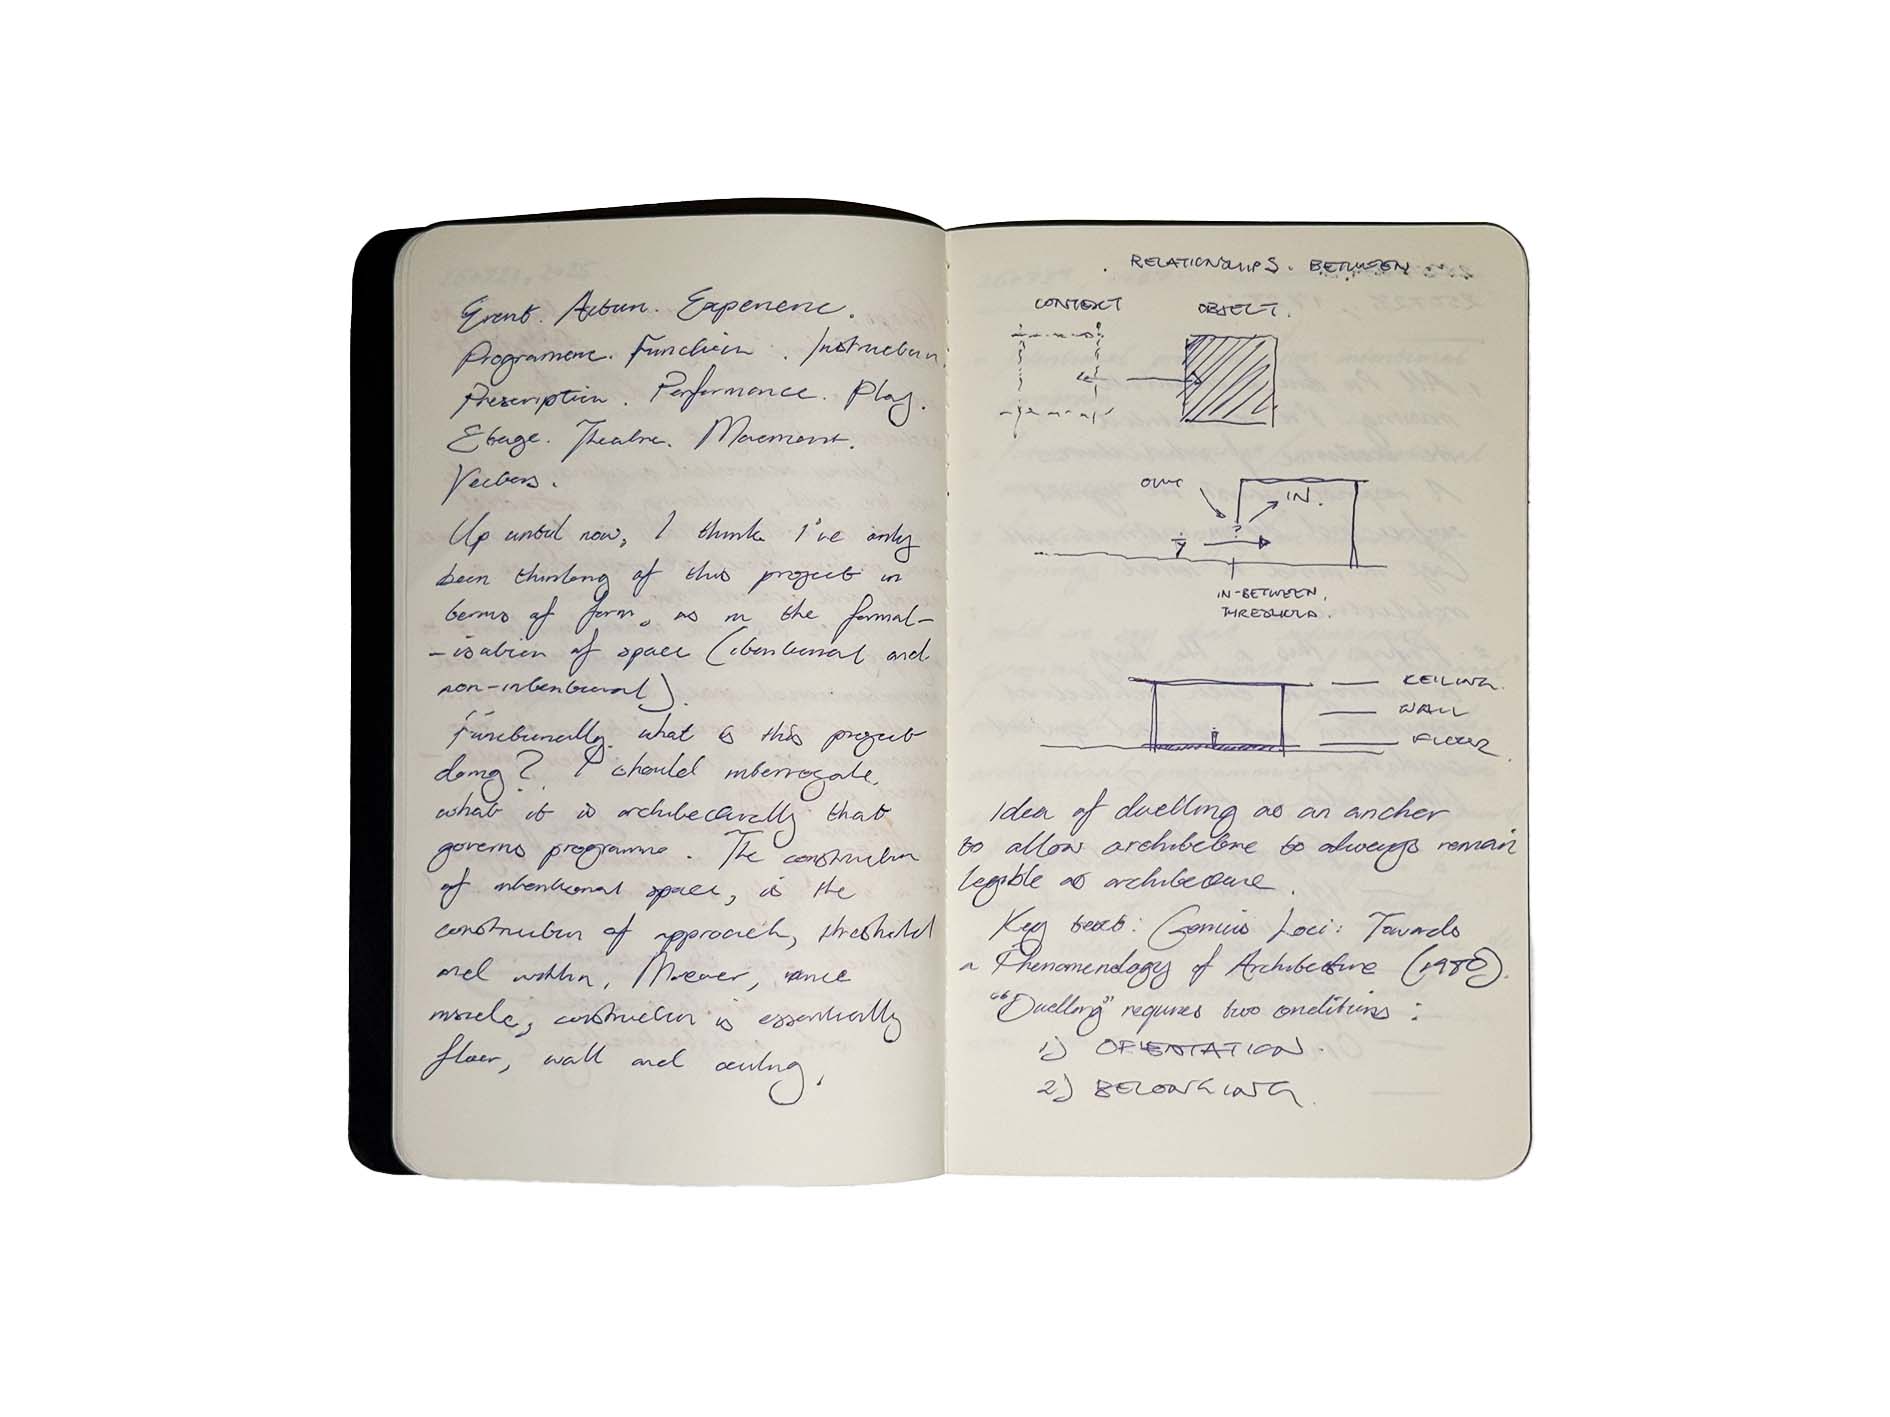 Event. Action. Experience.
Programme. Function. Instruction
Prescription. Performance. Play.
Stage. Theatre. Movement.
Vectors.
Up until now, I think I've only
been thinking of this project in
terms of form, as in the formal-
-isation of space (intentional and
non-intentional).
Functionally, what is this project
doing? I should interrogate
what it is architecturally that
governs programme. The construction
of intentional space, is the
construction of approach, threshold
and within. Moreover, once
inside, construction is essentially
floor, wall and ceiling.
RELATIONSHIPS. BETWEEN
CONTEXT OBJECT.
OUT
IN.
?
IN-BETWEEN.
THRESHOLD.
CEILING.
WALL
FLOOR.
Idea of dwelling as an anchor
to allow architecture to always remain
legible as architecture.
Key text: Genius Loci: Towards
a Phenomenology of Architecture (1980).
"Dwelling" requires two conditions:
1) ORIENTATION.
2) BELONGING.